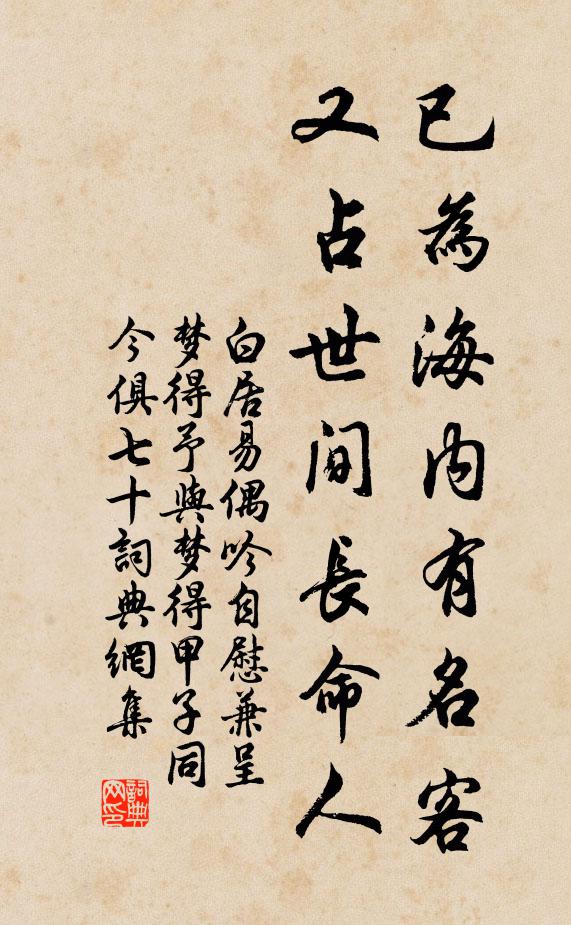 已為海内有名客
又占世間長命人
白居易偶吟自慰兼呈
梦得予與梦得甲子同
今俱七十詞典網集
詞典
网印